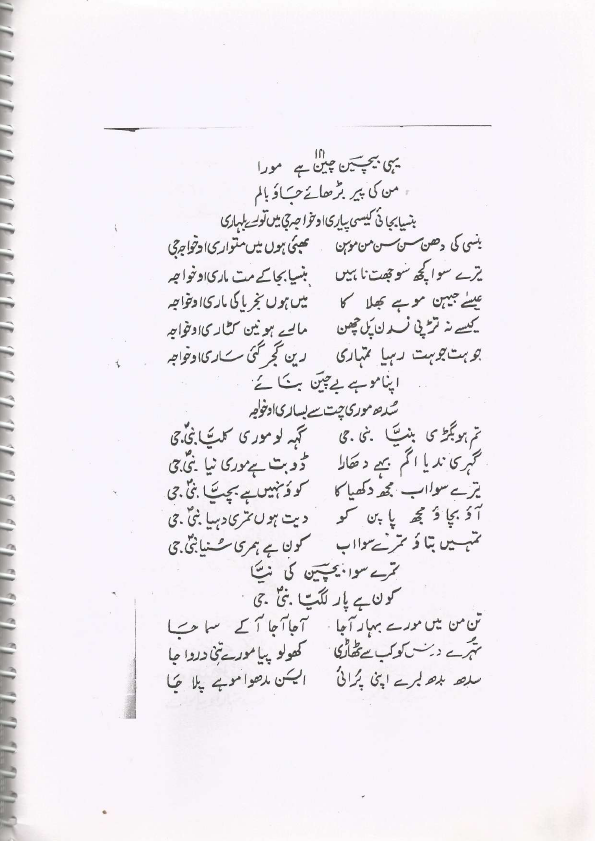 ۱۲۱
یہی بیچین چین ہے مورا
من کی پیر بڑھائے جاؤ بالم
بنسیا بجائی کیسی پیاری او خواجہ جی میں تورے بلہاری
بنسی کی دھن سن سن من موہن بھئی ہوں میں متواری او خواجہ جی
ترے سوا کچھ سوجھت ناہیں بنسیا بجا کے مت ماری او خواجہ
عیسےٰ جیہن موہے بھلا کا میں ہوں نجریا کی ماری او خواجہ
کیسے نہ تڑپی نسدن پل چھن مارے ہو نین کٹاری او خواجہ
جوہت جوہت رہیا تمہاری رین گجر گئی ساری او خواجہ
اپنا موہے بے چین بنائے
سدھ موری چت سے بساری او خواجہ
تم ہو بگڑی بنیّا بنی جی گہہ لو موری کلیّا بنی جی
گہری ندیا اگم بہے دھارا ڈوبت ہے موری نیا بنی جی
ترے سوا اب مجھ دکھیا کا کوؤ نہیں ہے بچیّا بنی جی
آؤ بچاؤ مجھ پاپن کو دیت ہوں تمری دہیا بنی جی
تمہیں بتاؤ تمرے سوا اب کون ہے ہمری سنیا بنی جی
تمرے سوا بیچین کی نیّا
کون ہے پار لگیّا بنی جی
تن من میں مورے بہار آجا آجا آجا آ کے سما جا
تمہرے درس کو کب سے ٹھاڑی کھولو پیا مورے تنی دروا جا
سدھ بدھ بسرے اپنی پرائی ایسن مدھوا موہے پلا جا